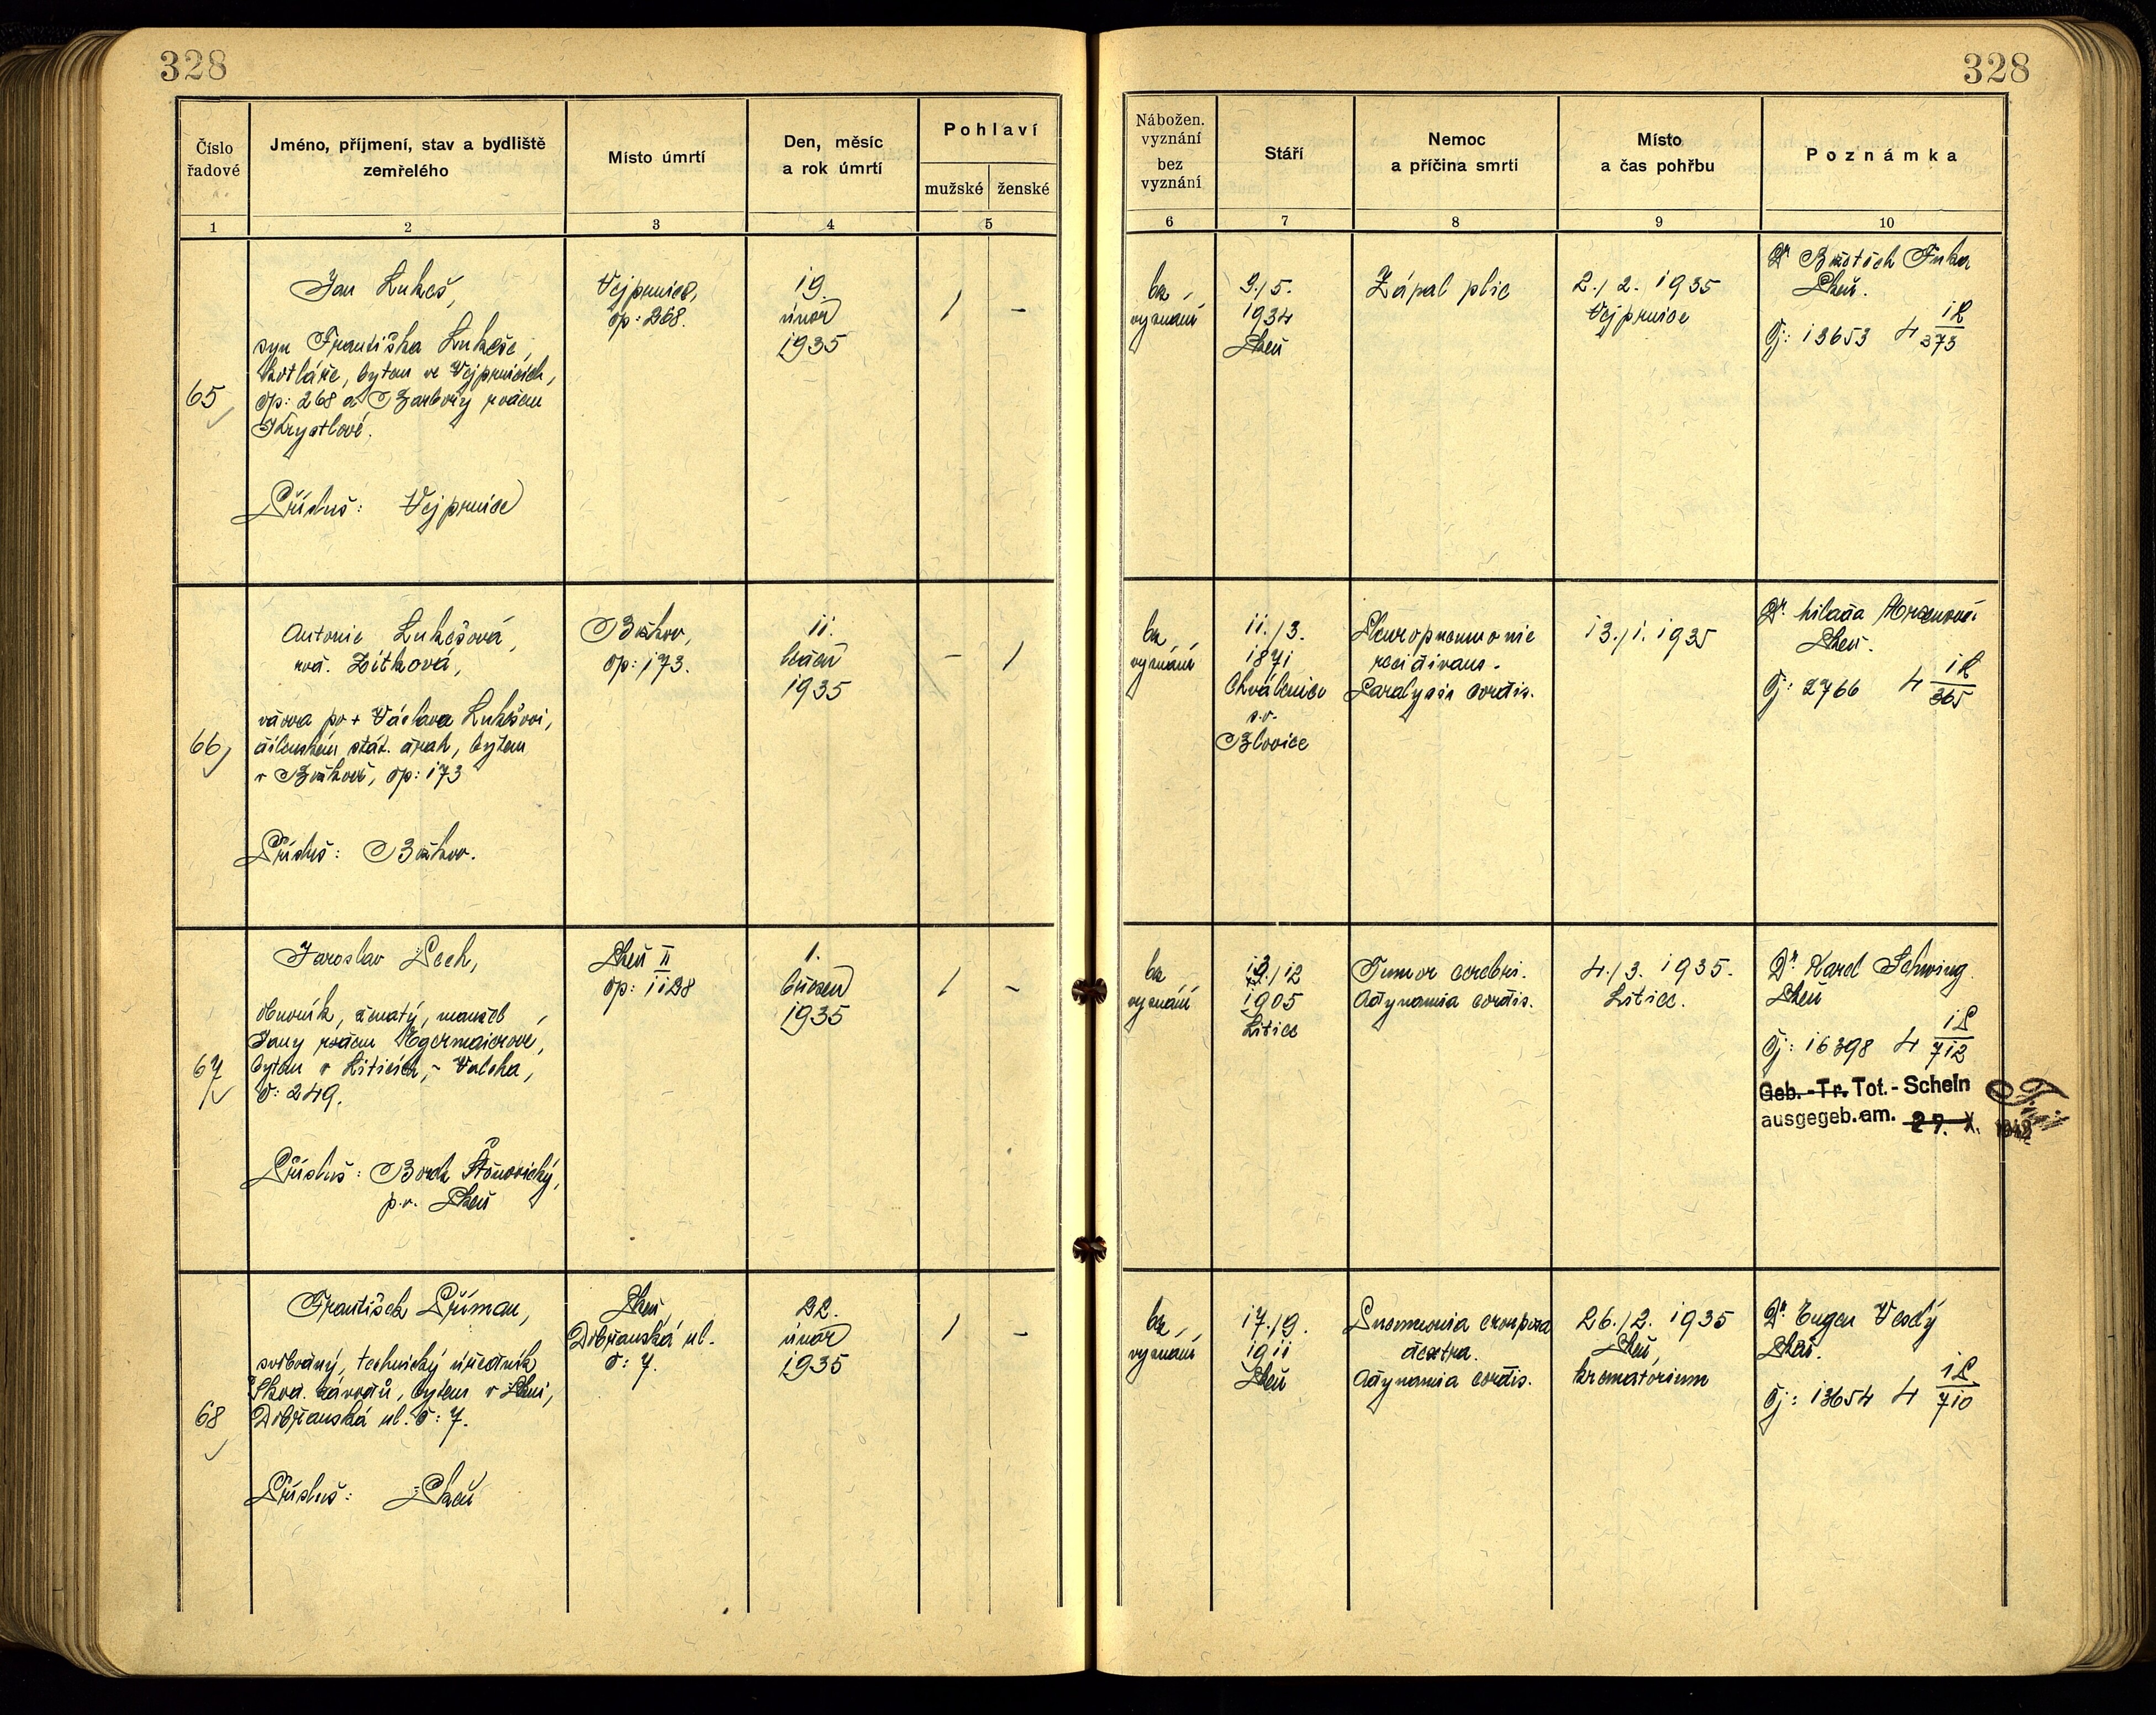 328
328
Číslo
řadové
Jméno, příjmení, stav a bydliště
zemřelého
Místo úmrtí
Den, měsíc
a rok úmrtí
Pohlaví
mužské
ženské
Nábožen.
vyznání
bez
vyznání
Stáří
Nemoc
a příčina smrti
Místo
a čas pohřbu
Poznámka
1
2
3
4
5
6
7
8
9
10
65
Jan Lukeš,
syn Františka Lukeše,
kotláře, bytem ve Vejprnicích,
čp: 268 a Barbory rozen
Krystlové.
Přísluš: Vejprnice
Vejprnice,
čp: 268.
19.
únor
1935
1
-
bez
vyznání
3./5.
1934
Plzeň
Zápal plic
2./2. 1935
Vejprnice
Dr
Plzeň.
čj: 13653 4
373
66
Antonie Lukešová,
roz. Zítková,
vdova po + Václavu Lukešovi,
dílenském stát. drah, bytem
v Božkově, čp: 173
Přísluš: Božkov.
Božkov,
čp: 173.
11.
leden
1935
-
1
bez
vyznání
11./3.
1871
Chválenice
s.o.
Blovice
Pleuropneumonie
recidivans.
Paralysis cordis.
13./1. 1935
Dr. Milada
Plzeň.
čj: 2766 4
365
67
Jaroslav Pech,
obuvník, ženatý, manžel
Jany rozen Egermaierové,
bytem v Liticích, - Valcha,
č: 249.
Přísluš: Borek
p.o. Plzeň
Plzeň II
čp: 1128
1.
březen
1935
1
-
bez
vyznání
13./12
1905
Litice
Tumor cerebri.
Adynamia cordis.
4./3. 1935.
Litice.
Dr. Karel Schwing
Plzeň
čj: 16398 4
712
Geb.-Tr. Tot.- Schein
ausgegeb. am. 27. X. 1942
68
František Příman,
svobodný, technický úředník
Škod. závodů, bytem v Plzni,
Dobřanská ul. č: 7.
Přísluš: Plzeň
Plzeň,
Dobřanská ul.
č: 7.
22.
únor
1935
1
-
bez
vyznání
17./9.
1911
Plzeň
Pneumonia crouposa
dextra.
Adynamia cordis.
26./2. 1935
Plzeň,
krematorium
Dr. Eugen Veselý
Plzeň.
čj: 13654 4
710